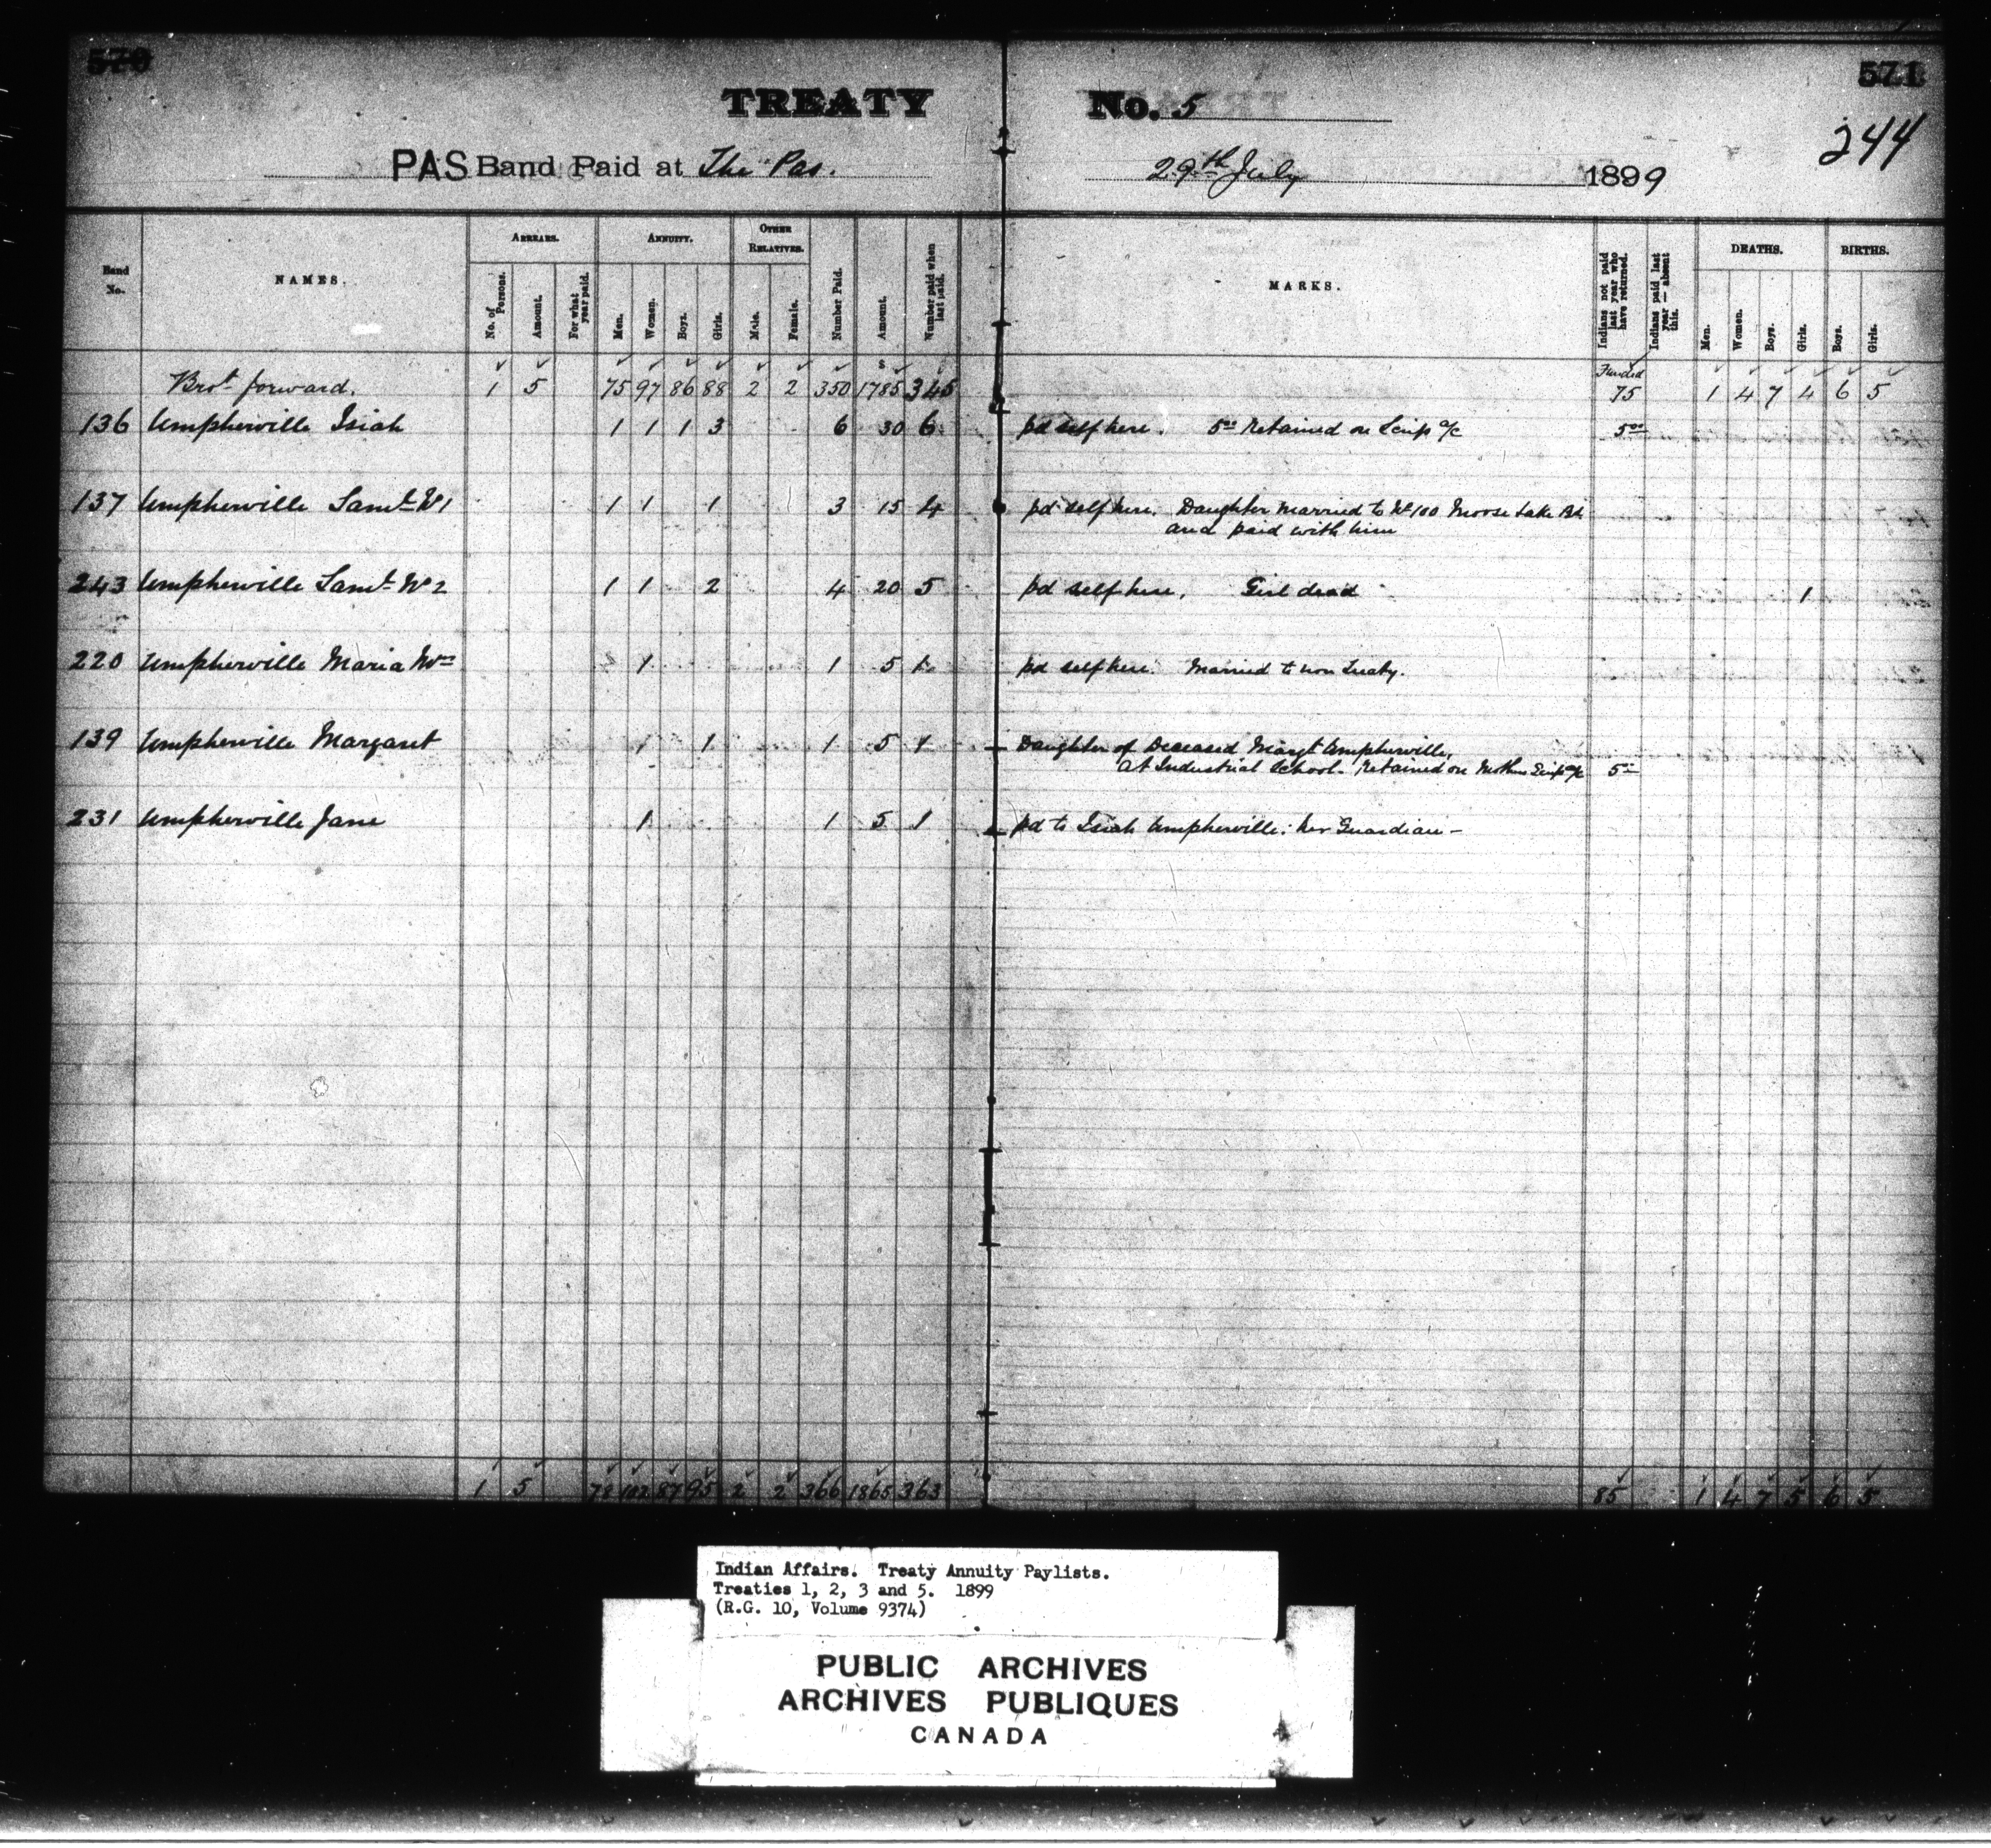 570
571
244
TREATY No. 5
PAS Band Paid at The Pas. 29th July 1899
Band No. NAMES. ARREARS. ANNUITY. OTHER RELATIVES. Number Paid. Amount. Number paid when last paid. MARKS. Indians not paid last year who have returned. Indians paid last year — absent this. DEATHS. BIRTHS.
No. of Persons. Amount. For what year paid. Men. Women. Boys. Girls. Male. Female. Men. Women. Boys. Girls. Boys. Girls.
Brot forward. 1 5 75 97 86 88 2 2 350 $ 1785 345 Funded 75 1 4 7 4 6 5
136 Umpherville Isiah 1 1 1 3 6 30 6 pd self here. 5.00 Retained on Scrip a/c 5.00
137 Umpherville Saml No 1 1 1 1 3 15 4 pd self here. Daughter married to No 100 Moose Lake Bd.
and paid with him
243 Umpherville Saml No 2 1 1 2 4 20 5 pd self here. Girl dead 1
220 Umpherville Maria 1 1 5 1 pd self here. Married to non Treaty.
139 Umpherville Margaret 1 1 5 1 Daughter of Deceased Margt Umpherville,
at Industrial School. Retained on Mothers Scrip a/c 5
231 Umpherville Jane 1 1 5 1 pd to Isiah Umpherville. her Guardian —
1 5 78 102 87 95 2 2 366 1865 363 85 1 4 7 5 6 5
Indian Affairs. Treaty Annuity Paylists.
Treaties 1, 2, 3 and 5. 1899
(R.G. 10, Volume 9374)
PUBLIC ARCHIVES
ARCHIVES PUBLIQUES
CANADA